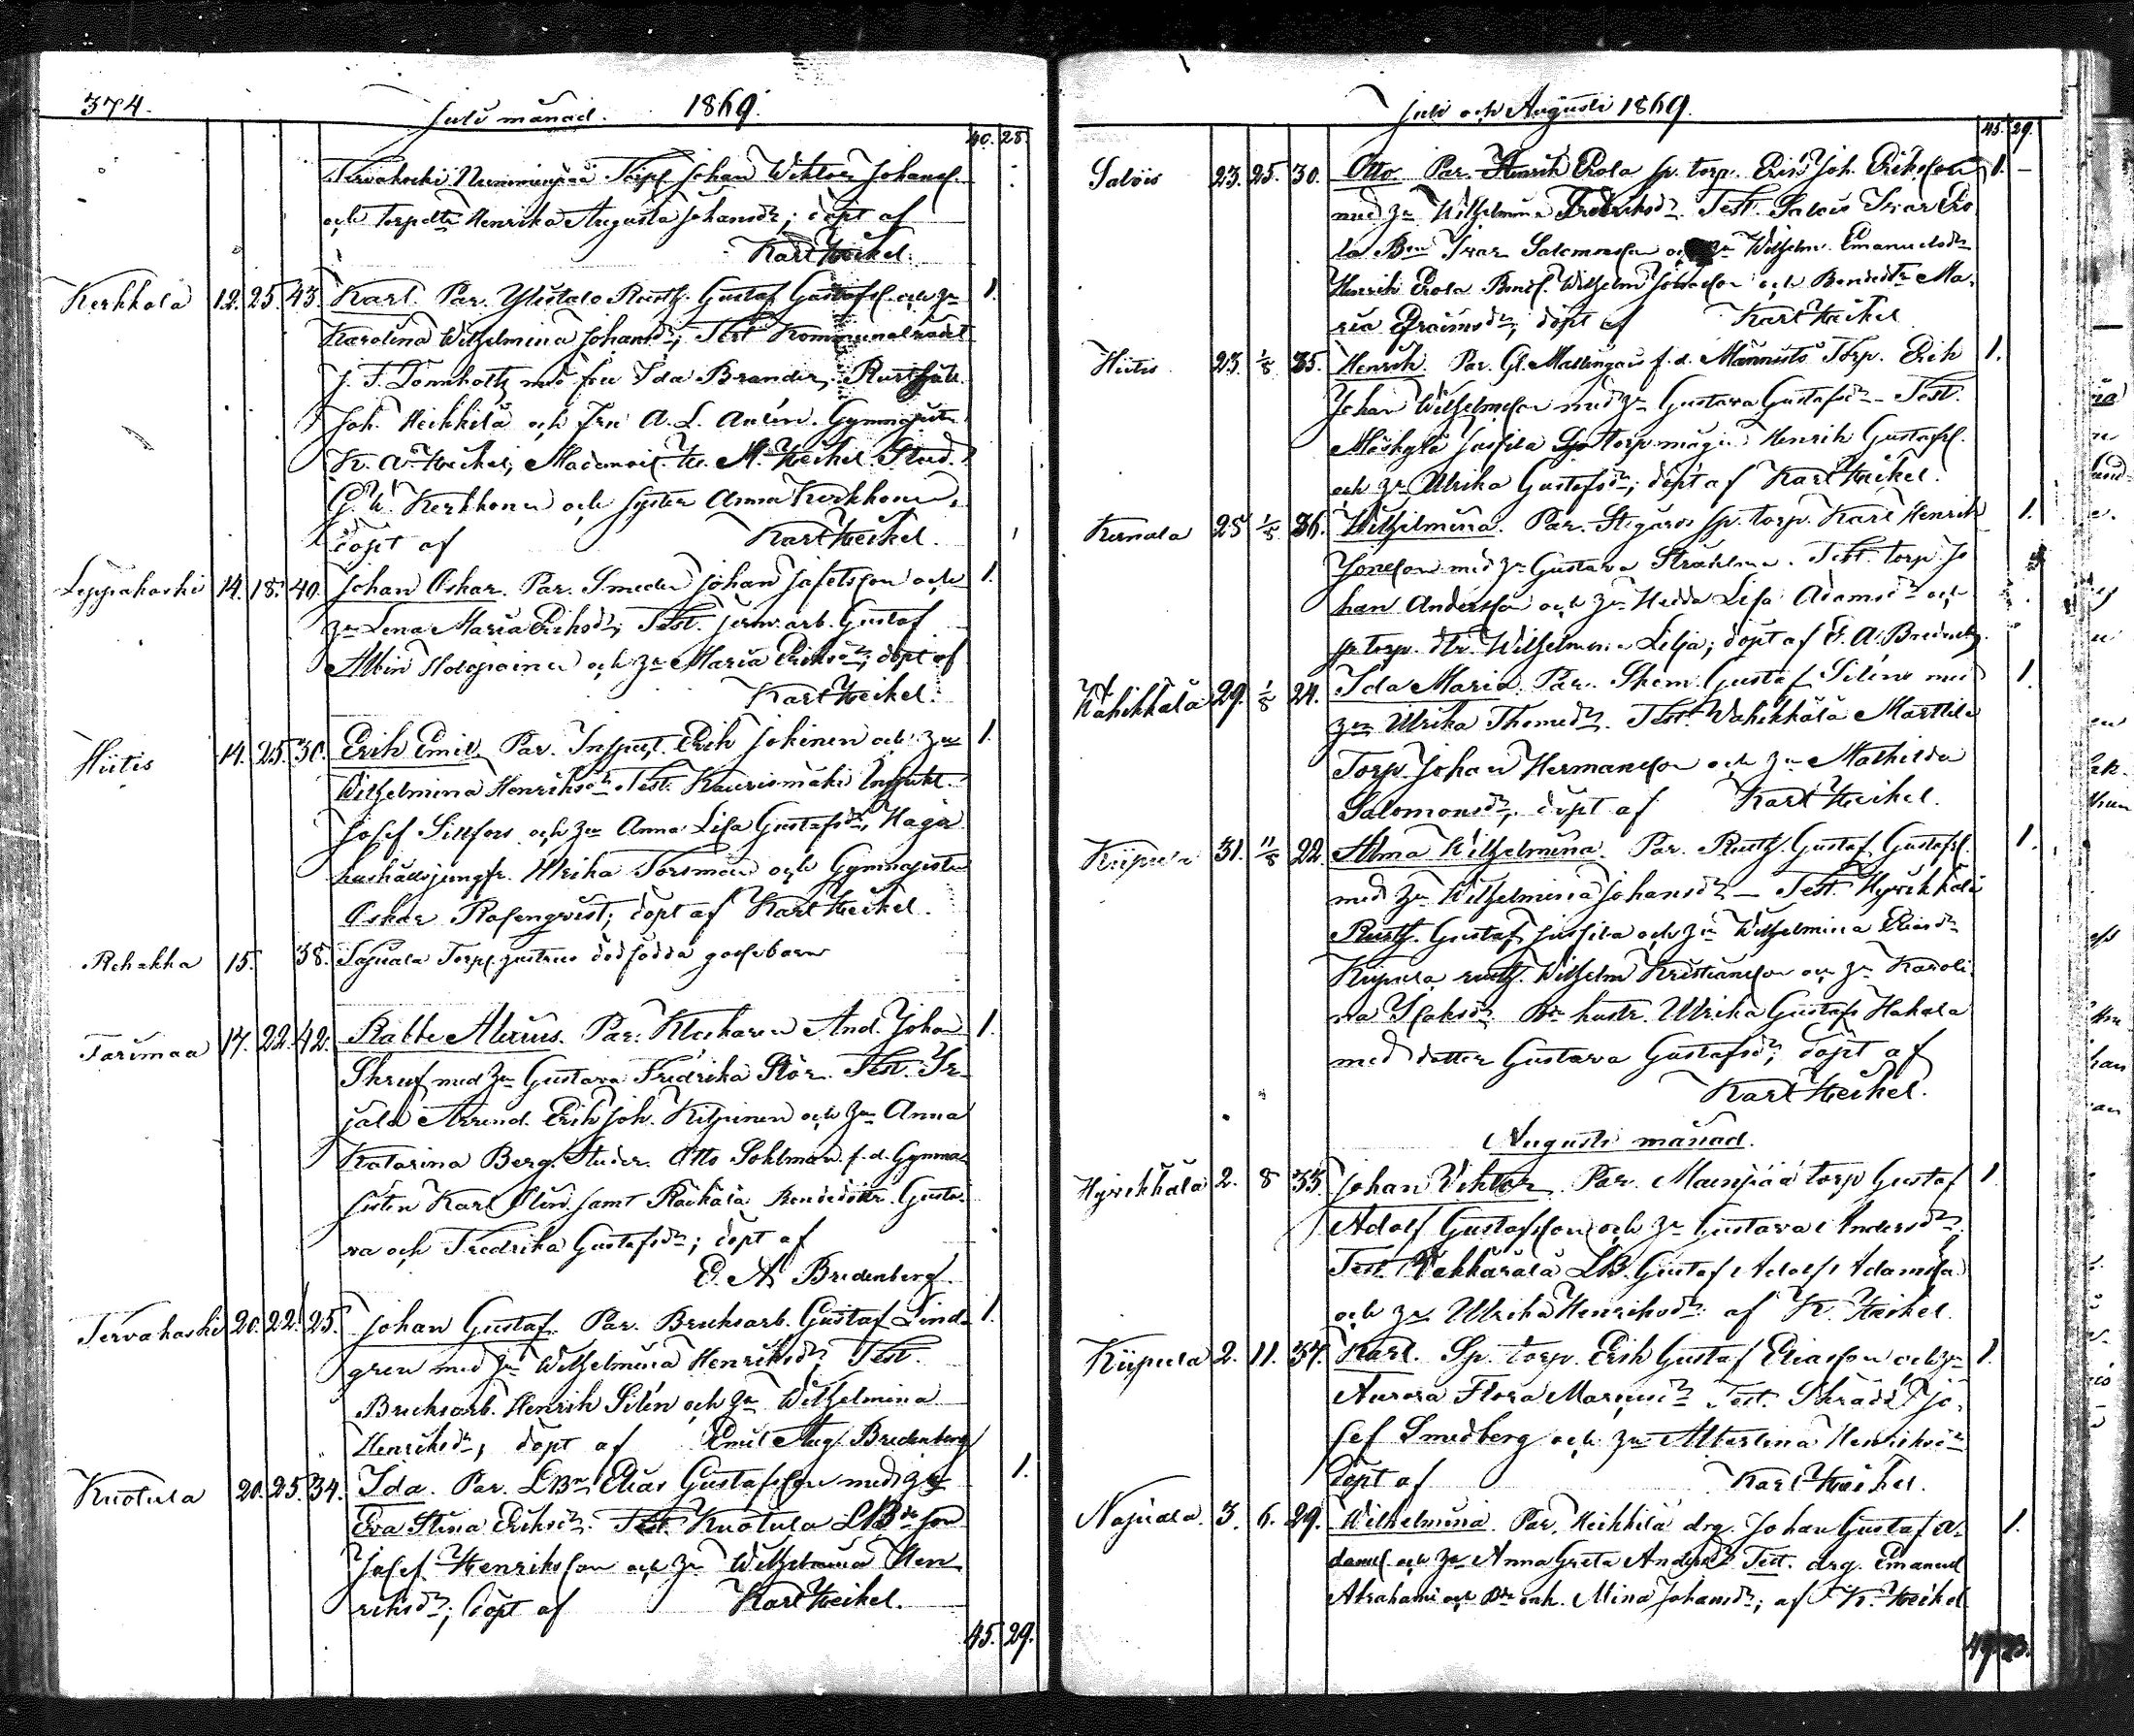 374. Juli månad. 1869.
40. 28.
Tervakoski Nummenpää Torpf. Johan Wiktor Johansf.
och torpdtr Henrika Augusta Johansdr; döpt af
Karl Heikel.
Kerkkola 12. 25. 43. Karl. Par. Ylistalo Rusth. Gustaf Gustafsf. och hu 1.
Karolina Wilhelmina Johansdr; Test. Kommunalrådet
J. F. Dommholtz med fru Ida Brander, Rusthåll.
Joh. Heikkilä och fru A. L. Aulin. Gymnasisten
K. A. Heikel, Madmois. M. Heikel. Stud.
G. W. Kerkkonen och syster Anna Kerkkonen,
döpt af Karl Heikel.
Leppäkoski 14. 18. 40. Johan Oskar. Par. Smeden Johan Jafetsson och 1.
hu Lena Maria Eriksdr; Test. jernv. arb. Gustaf
Albin Holopainen och hu Maria Eriksdr; döpt af
Karl Heikel.
Hiitis 14. 25. 30. Erik Emil. Par. Inspekt. Erik Jokinen och hu 1.
Wilhelmina Henriksdr. Test. Kaurismäki Inspekt.
Josef Sillfors och hu Anna Lisa Gustafsdr, Haga
hushållsjungfr. Ulrika Forsman och Gymnasisten
Oskar Rosenqvist; döpt af Karl Heikel.
Rehakka 15. 38. Torpf. hustrus dödfödda gossebarn
Tarimaa 17. 22. 42. Kalle Alexius. Par. Klockaren And. Johan 1.
Skruf med hu Gustava Fredrika Stör. Test. Ir-
jala Arrend. Erik Joh. Kilpinen och hu Anna
Katarina Berg. Studer. Otto Sohlman f. d. Gymna-
sisten Karl Olin samt Räikälä Bondedöttr. Gusta-
va och Fredrika Gustafsdr; döpt af
E. A. Bredenberg.
Tervakoski 20. 22. 25. Johan Gustaf. Par. Bruksarb. Gustaf Lind- 1.
gren med hu Wilhelmina Henriksdr, Test.
Bruksarb. Henrik Silén och hu Wilhelmina
Henriksdr, döpt af Emil Aug. Bredenberg
Kuotula 20. 25. 34. Ida. Par. LBn Elias Gustafsson med hu 1.
Eva Stina Eriksdr. Test. Kuotula LBde son
Josef Henriksson och hu Wilhelmina Hen-
riksdr; döpt af Karl Heikel.
45. 29.
Juli och Augusti 1869.
45. 29.
Salois 23. 25. 30. Otto. Par. Henrik Erola sp. torp. Erik Joh. Eriksson 1. -
med hu Wilhelmina Fredriksdr. Test. Salois Ivar Ero-
la Bn Ivar Salomonsson och hu Wilhelm. Emanuelsdr
Henrik Erola Bondf. Wilhelm Johansson och Bondedtr Ma-
ria Efraimsdr; döpt af Karl Heikel
Hiitis. 23. 1/8 35. Henrik. Par. Gl. Mallingais f. d. Männistö Torp. Erik 1.
Johan Wilhelmsson med hu Gustava Gustafsdr - Test.
Möskylä Jussila torpmågen Henrik Gustafsf.
och hu Ulrika Gustafsdr; döpt af Karl Heikel.
Kernala 25 1/8 36. Wilhelmina. Par. Stigaros sp. torp. Karl Henrik 1.
Jonsson med hu Gustava Stråhlman. Test. torp. Jo-
han Andersson och hu Hedda Lisa Adamsdr och
sp. torp. dtr. Wilhelmina Lilja; döpt af E. A. Bredenbg.
Wähikkälä 29. 1/8 24. Ida Maria. Par. Skom. Gustaf Silén med 1.
hu Ulrika Thomedr. Test. Wähikkälä Marttila
Torp. Johan Hermansson och hu Mathilda
Salomonsdr, döpt af Karl Heikel.
Kiipula 31. 11/8 22. Alma Wilhelmina. Par. Rusth. Gustaf Gustafsf. 1.
med hu Wilhelmina Johansdr - Test. Hyvikkälä
Rusth. Gustaf Jussila och hu Wilhelmina Eliasdr
Kiipula rusth. Wilhelm Kristiansson och hu Karoli-
na Isaksdr Bn hustr. Ulrika Gustafs Hakala
med dotter Gustava Gustafsdr; döpt af
Karl Heikel.
Augusti månad.
Hyvikkälä 2. 8 33. Johan Viktor. Par. Maenpää torp Gustaf 1.
Adolf Gustafsson och hu Gustava Andersdr.
Test. Wekkärälä LB. Gustaf Adolf Adamsson
och hu Ulrika Henriksdr af K. Heikel.
Kiipula 2. 11. 37. Karl. Sp. torp. Erik Gustaf Eliasson och hu 1.
Aurora Flora Marcusdr Test. Skrädd. Jo-
sef Smedberg och hu Albertina Henriksdr
döpt af Karl Heikel.
Napiala. 3. 6. 29. Wilhelmina. Par. Heikkilä drg. Johan Gustaf A- 1.
damsf. och hu Anna Greta Andersdr Test. drg. Emanuel
Abrahams och Mina Johansdr; af K. Heikel